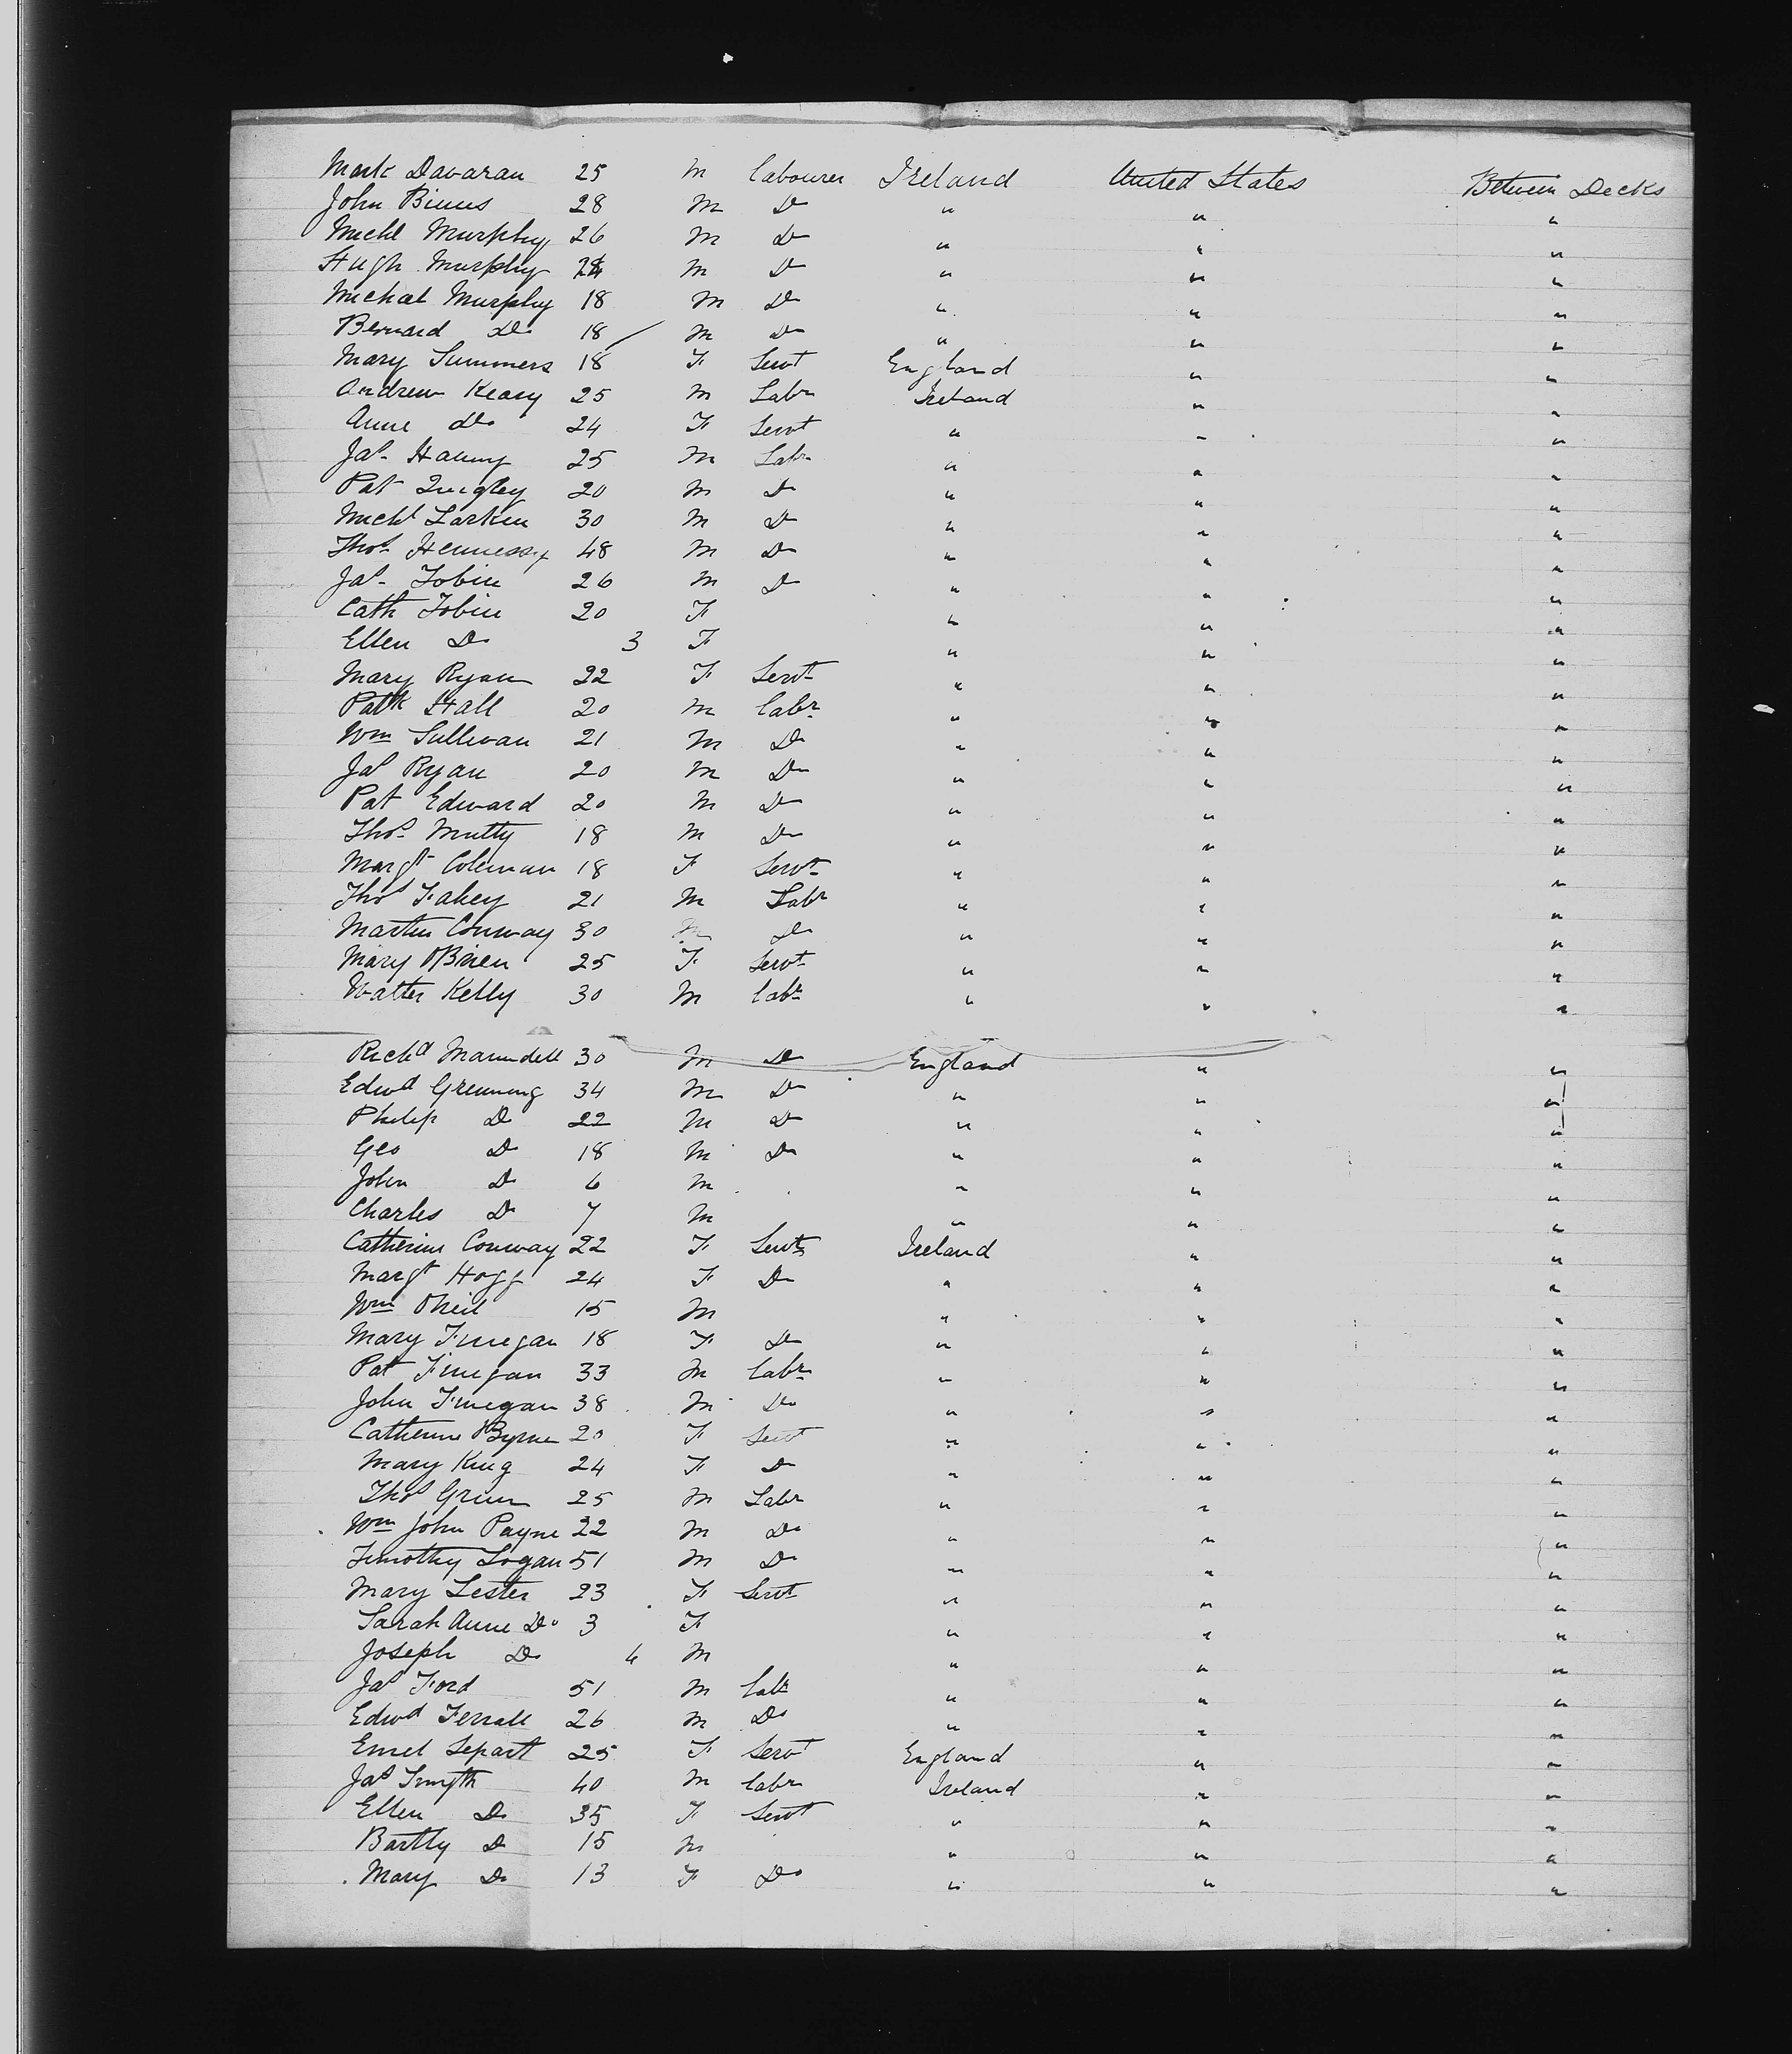 Mark Davaran 25 M Labourer Ireland United States Between Decks
John Binns 28 M Do " " "
Michl Murphy 26 M Do " " "
Hugh Murphy M Do " " "
Michael Murphy 18 M Do " " "
Bernard Do 18 M Do " " "
Mary Summers 18 F Servt England " "
Andrew Keary 25 M Labr Ireland " "
Anne Do 24 F Servt " " "
Jas 25 M Labr " " "
Pat Quigley 20 M Do " " "
Michl Larkin 30 M Do " " "
Thos Hennessy 48 M Do " " "
Jas Tobin 26 M Do " " "
Cath Tobin 20 F " " "
Ellen Do 3 F " " "
Mary Ryan 22 F Servt " " "
Patk Hall 20 M Labr " " "
Wm Sullivan 21 M Do " " "
Jas Ryan 20 M Do " " "
Pat Edward 20 M Do " " "
Thos Mutty 18 M Do " " "
Margt Coleman 18 F Servt " " "
Thos Fahey 21 M Labr " " "
Martin Conway 30 M Do " " "
Mary OBrien 25 F Servt " " "
Walter Kelly 30 M Labr " " "
Richd Maundell 30 M Do England " "
Edwd Greening 34 M Do " " "
Philip Do 22 M Do " " "
Geo Do 18 M Do " " "
John Do 6 M " " "
Charles Do 7 M " " "
Catherine Conway 22 F Servt Ireland " "
Margt Hogg 24 F Do " " "
Wm ONeil 15 M " " "
Mary Finegan 18 F Do " " "
Pat Finegan 33 M Labr " " "
John Finegan 38 M Do " " "
Catherine Byrne 20 F Servt " " "
Mary King 24 F Do " " "
Thos Green 25 M Labr " " "
Wm John Payne 22 M Do " " "
Timothy Logan 51 M Do " " "
Mary Lester 23 F Servt " " "
Sarah Anne Do 3 F " " "
Joseph Do M " " "
Jas Ford 51 M Labr " " "
Edwd Ferrall 26 M Do " " "
25 F Servt England " "
Jas Smyth 40 M Labr Ireland " "
Ellen Do 35 F Servt " " "
Bartly Do 15 M " " "
Mary Do 13 F Do " " "